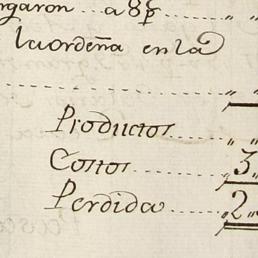 rgaron ... a 8p. ... " "
la ordeña en la
... " "
Productos ..... " "
Costos ....... " 3 "
Perdida ...... " 2 "